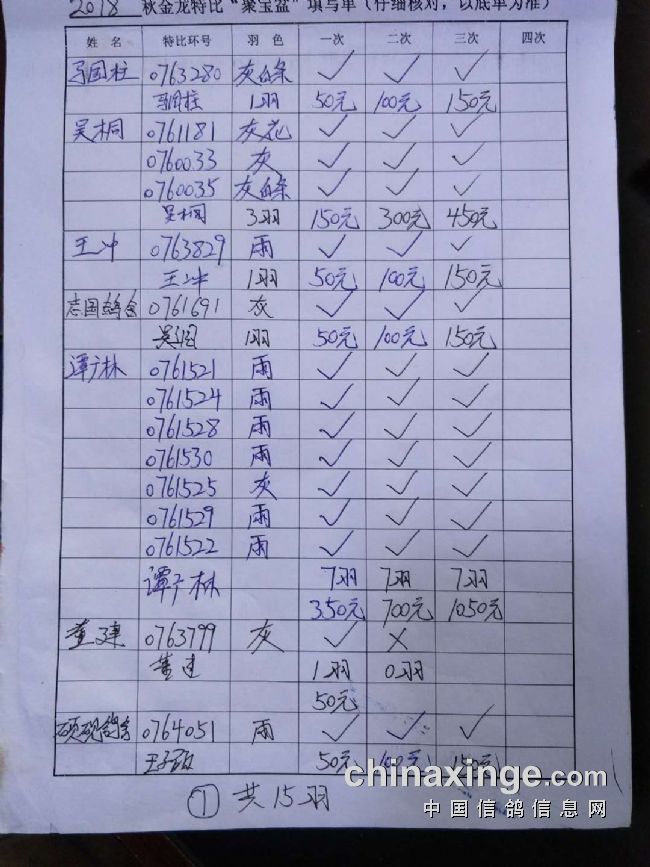 2018 秋金龙特比“聚宝盆”填写单(仔细核对,以底单为准)
姓 名 特比环号 羽 色 一次 二次 三次 四次
马国柱 0763280 灰白条 ✓ ✓ ✓
马国柱 1羽 50元 100元 150元
吴桐 0761181 灰花 ✓ ✓ ✓
0760033 灰 ✓ ✓ ✓
0760035 灰白条 ✓ ✓ ✓
吴桐 3羽 150元 300元 450元
王冲 0763829 雨 ✓ ✓ ✓
王冲 1羽 50元 100元 150元
志国鸽舍 0761691 灰 ✓ ✓ ✓
1羽 50元 100元 150元
谭广林 0761521 雨 ✓ ✓ ✓
0761524 雨 ✓ ✓ ✓
0761528 雨 ✓ ✓ ✓
0761530 雨 ✓ ✓ ✓
0761525 灰 ✓ ✓ ✓
0761529 雨 ✓ ✓ ✓
0761522 雨 ✓ ✓ ✓
谭广林 7羽 7羽 7羽
350元 700元 1050元
董建 0763799 灰 ✓ ×
董建 1羽 0羽
50元
硕砚鸽舍 0764051 雨 ✓ ✓ ✓
50元 100元 150元
① 共15羽
chinaxinge.com
中国信鸽信息网